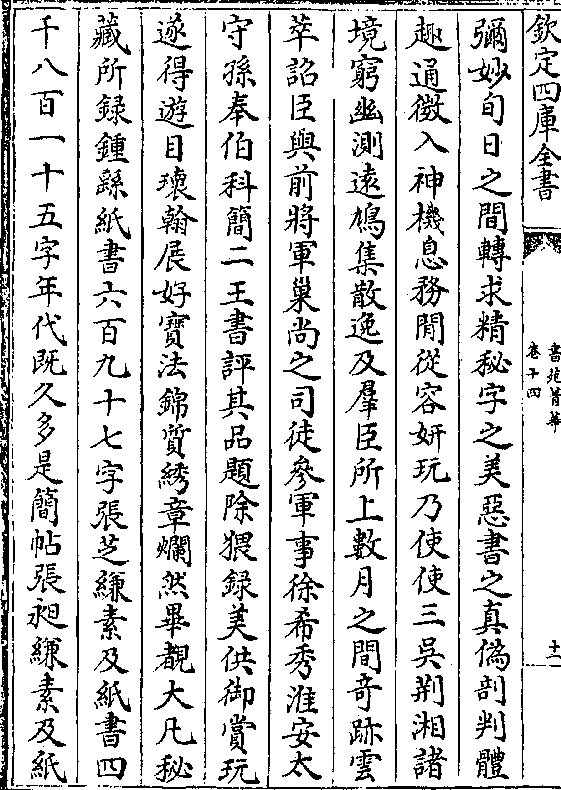 欽定四庫全書
書苑菁華
卷十四
十一
彌妙旬日之間轉求精秘字之美惡書之真偽剖判體
趣通微入神機息務閒從容妍玩乃使使三吳荆湘諸
境窮幽測遠鳩集散逸及羣臣所上數月之間奇跡雲
萃詔臣與前將軍巢尚之司徒參軍事徐希秀淮安太
守孫奉伯科簡二王書評其品題除猥録美供御賞玩
遂得遊目瓌翰展好寶法錦質綉章爛然畢覩大凡秘
藏所録鍾繇紙書六百九十七字張芝縑素及紙書四
千八百一十五字年代既久多是簡帖張昶縑素及紙